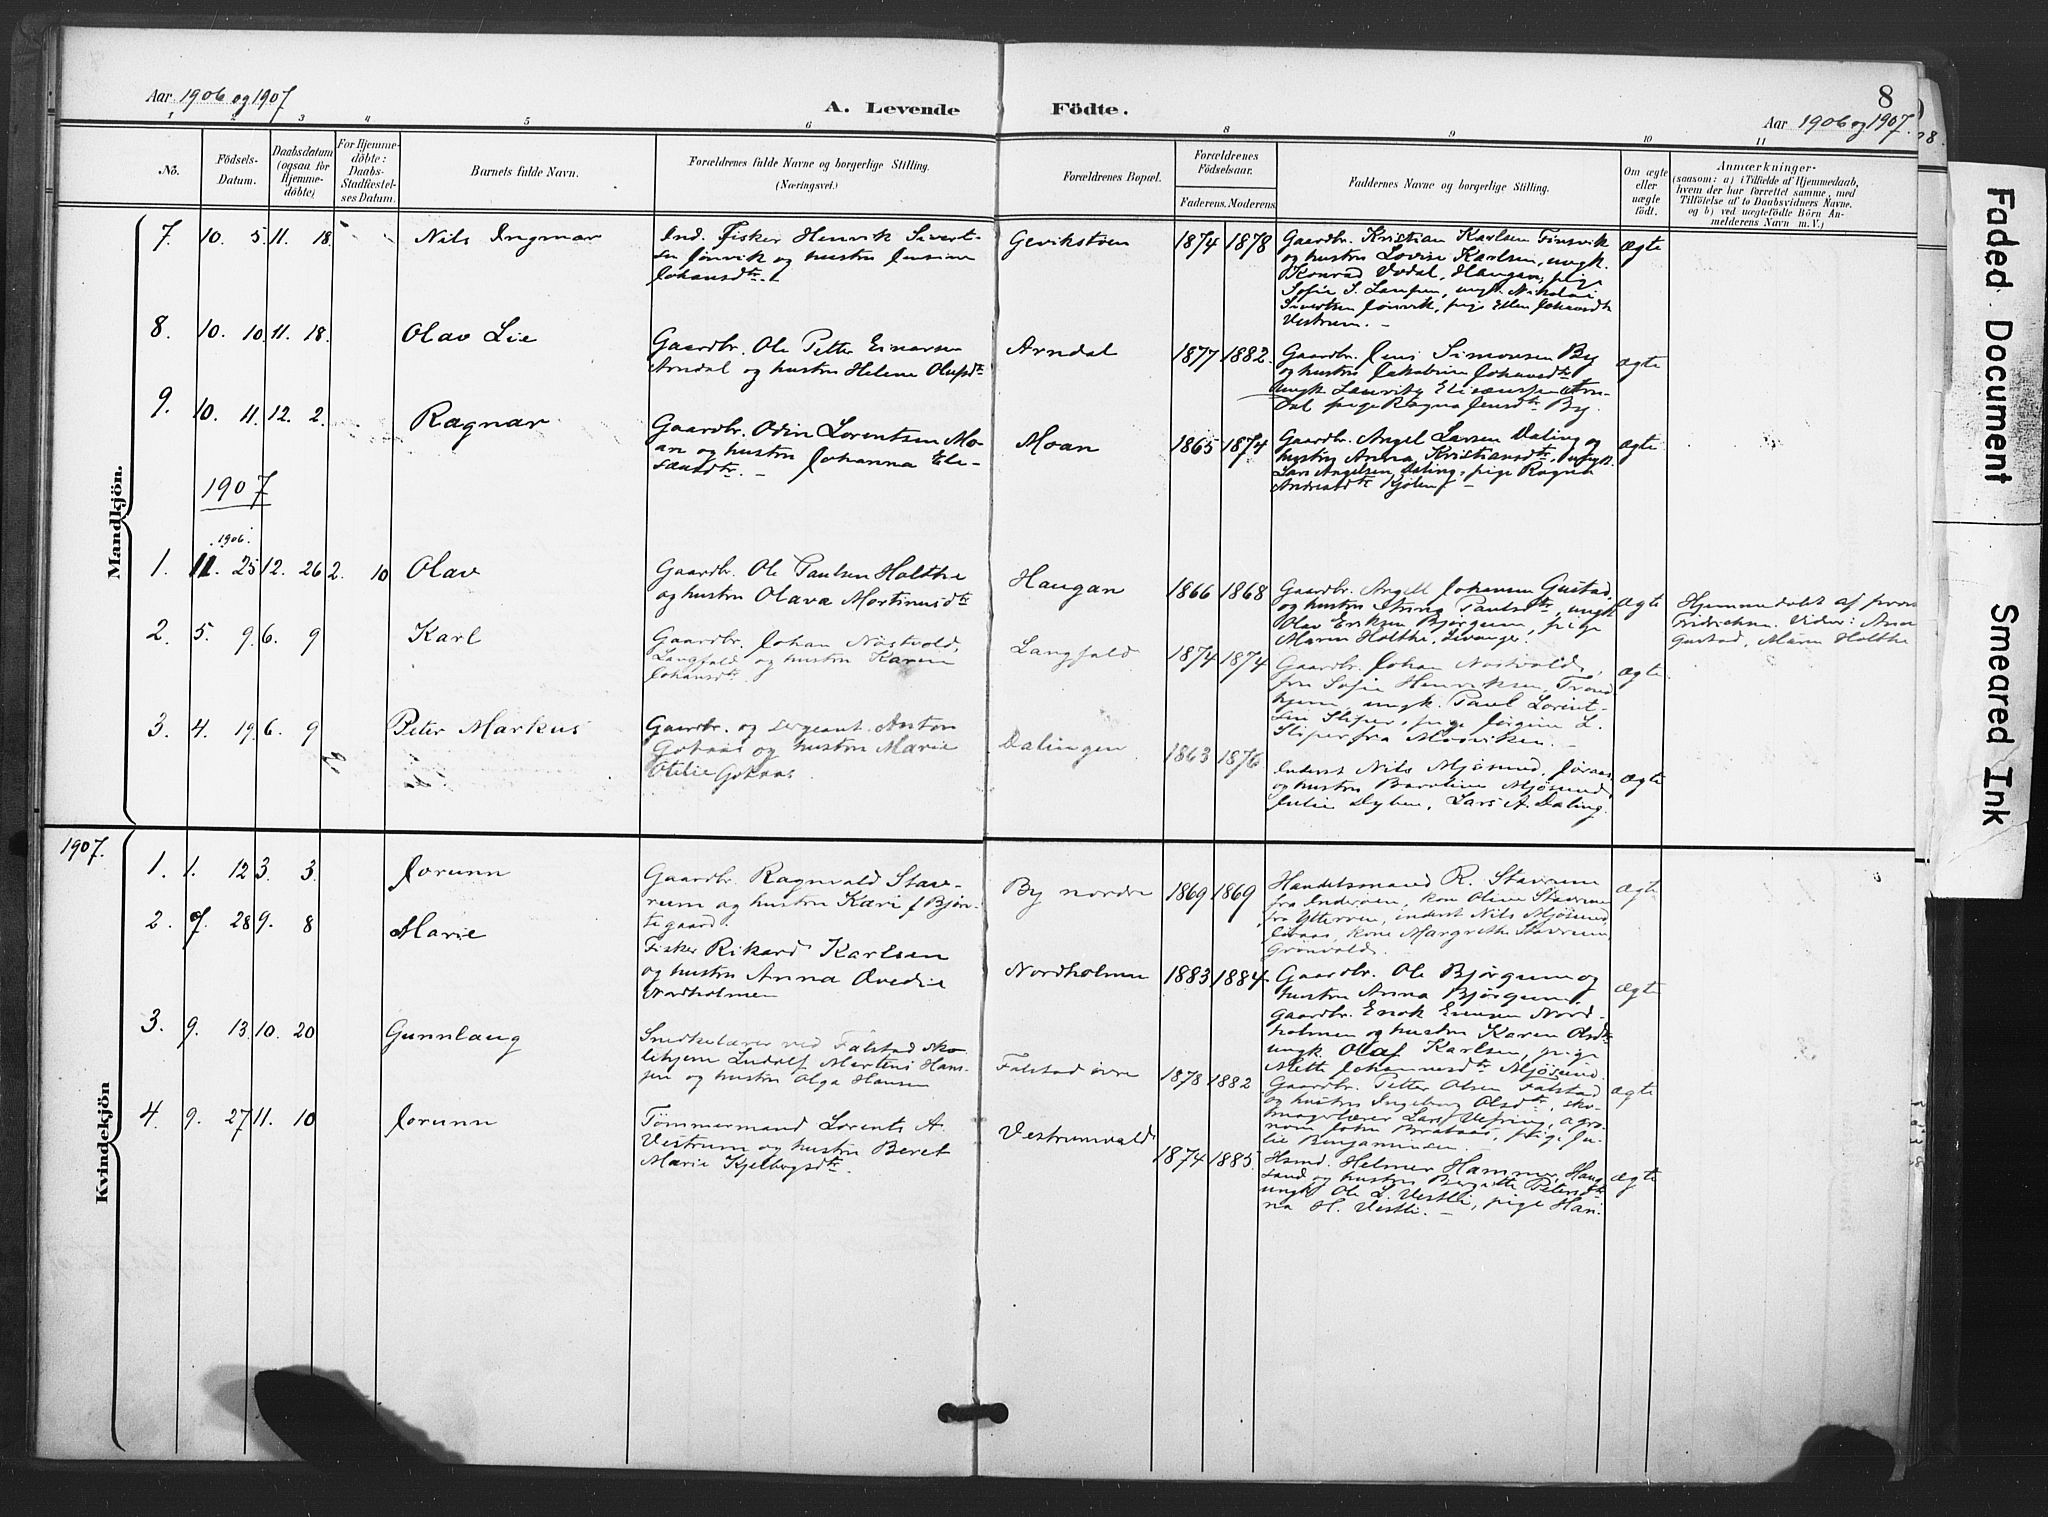 Aar 1906 og 1907
A. Levende Födte.
8
Aar 1906 og 1907.
1 2 3 4 5 6 8 9 10 11
No.
Födsels-
Datum.
Daabsdatum
(ogsaa for
Hjemme-
döbte)
For Hjemme-
döbte:
Daabs-
Stadfæstel-
ses Datum.
Barnets fulde Navn.
Forældrenes fulde Navne og borgerlige Stilling.
(Næringsvei.)
Forældrenes Bopæl.
Forældrenes
Födselsaar.
Faderens. Moderens.
Faddernes Navne og borgerlige Stilling.
Om ægte
eller
uægte
födt.
Anmærkninger
(saasom: a) i Tilfælde af Hjemmedaab,
hvem der har forrettet samme, med
Tilföielse af to Daabsvidners Navne.
og b) ved uægtefödte Börn An-
melderens Navn m. V.)
Mandkjön.
7. 10. 5. 11. 18. Nils Ingmar
Ind. Fisker Henrik Sivert-
sen Jönvik og hustru Jensine
Johansdtr.
1874 1878
Gaardbr. Kristian Karlsen Finsvik
og hustru Lovise Karlsen, ungk.
Konrad Vodal, Haugan, pige
Sofie S. , ungk. Nikolai
Sivertsen Jönvik, pige Ellen Johansdtr
Vestrum.
ægte
8. 10. 10. 11. 18. Olav Lie
Gaardbr. Ole Petter Einarsen
Arndal og hustru Helene Olufsdtr
Arndal
1877 1882.
Gaardbr. Jens Simonsen By
og hustru Jakobine Johansdtr
ungk. Lauritz Eliasen Arn-
dal pige Ragna Jensdtr By.
ægte
9. 10. 11. 12. 2. Ragnar
Gaardbr. Odin Lorentsen Mo-
an og hustru Johanna Ele-
seusdtr.
Moan
1865 1874
Gaardbr. Angel Larsen Daling og
hustru Anna Kristiansdtr, ungk.
Lars Angelsen Daling, pige Ragna
Andreasdtr
ægte
1907
1906.
1. 11. 25 12. 26 2. 10 Olav
Gaardbr. Ole Paulsen Holthe
og hustru Olava Martinusdtr
Haugan
1866 1868
Gaardbr. Angell Johansen Gustad,
og hustru Paulsdtr, ungk.
Olav Eriksen Bjørgum, pige
Maren Holthe, Levanger.
ægte
Hjemmedøbt af
Fridrichsen. Vidner: Anna
Gustad, Maren Holthe
2. 5. 9. 6. 9 Karl
Gaardbr. Johan Nöstvold,
Langfald og hustru Karen
Johansdtr.
Langfald
1874 1874
Gaardbr. Johan Nöstvold,
fru Sofie Henriksen, Trond-
hjem, ungk. Paul Lorent-
sen Sliper, pige Jörgine L.
Sliper fra
ægte
3. 4. 19. 6. 9 Peter Markus
Gaardbr. og sergeant Anton
Gokaas og hustru Marie
Otelie Gokaas
Dalingen
1863 1876
Inderst Nils Mjösund,
og hustru Baroline Mjösund,
Julie Dyben, Lars A. Daling.
ægte
Kvindekjön
1907.
1. 1. 12 3. 3. Jorunn
Gaardbr. Ragnvald Stav-
rum og hustru Kari f. Bjön-
tegaard.
By nordre
1869 1869
Handelsmand R. Stavrum
fra Inderøen, kone Oline Stavrum
fra Ytterøen, inderst Nils Mjösund
, kone Margrethe Stavrum,
Grönvold.
ægte
2. 7. 28 9. 8 Marie
Fisker Rikard Karlsen
og hustru Anna Ovedie
Nordholmen
Nordholmen
1883 1884.
Gaardbr. Ole Bjørgum og
hustru Anna Bjørgum,
Gaardbr. Enok Nord-
holmen og hustru Karen Olsdtr
ungk. Olaf Karlsen, pige
Mette Johannesdtr Mjösund.
ægte
3. 9. 13. 10. 20 Gunnlaug
Snedkelærer ved Falstad sko-
lehjem Ludolf Martens Han-
sen og hustru Olga Hansen
Falstad övre
1878 1882
Gaardbr. Petter Olsen Falstad
og hustru Ingeborg Olsdtr, sko-
magerlærer Lars , agro-
nom John , pige Ju-
lie Benjaminsen.
ægte
4. 9. 27 11. 10 Jorunn
Tömmermand Lorents A.
Vestrum og hustru Beret
Marie Kjelbergsdtr.
Vestrumvald
1874 1885.
Hsmd. Helmer Hammer, Haug-
land og hustru Birgitte Petersdtr.
ungk Ole L. Vestli, pige Han-
na H. Vestli.
ægte
Faded Document
Smeared Ink